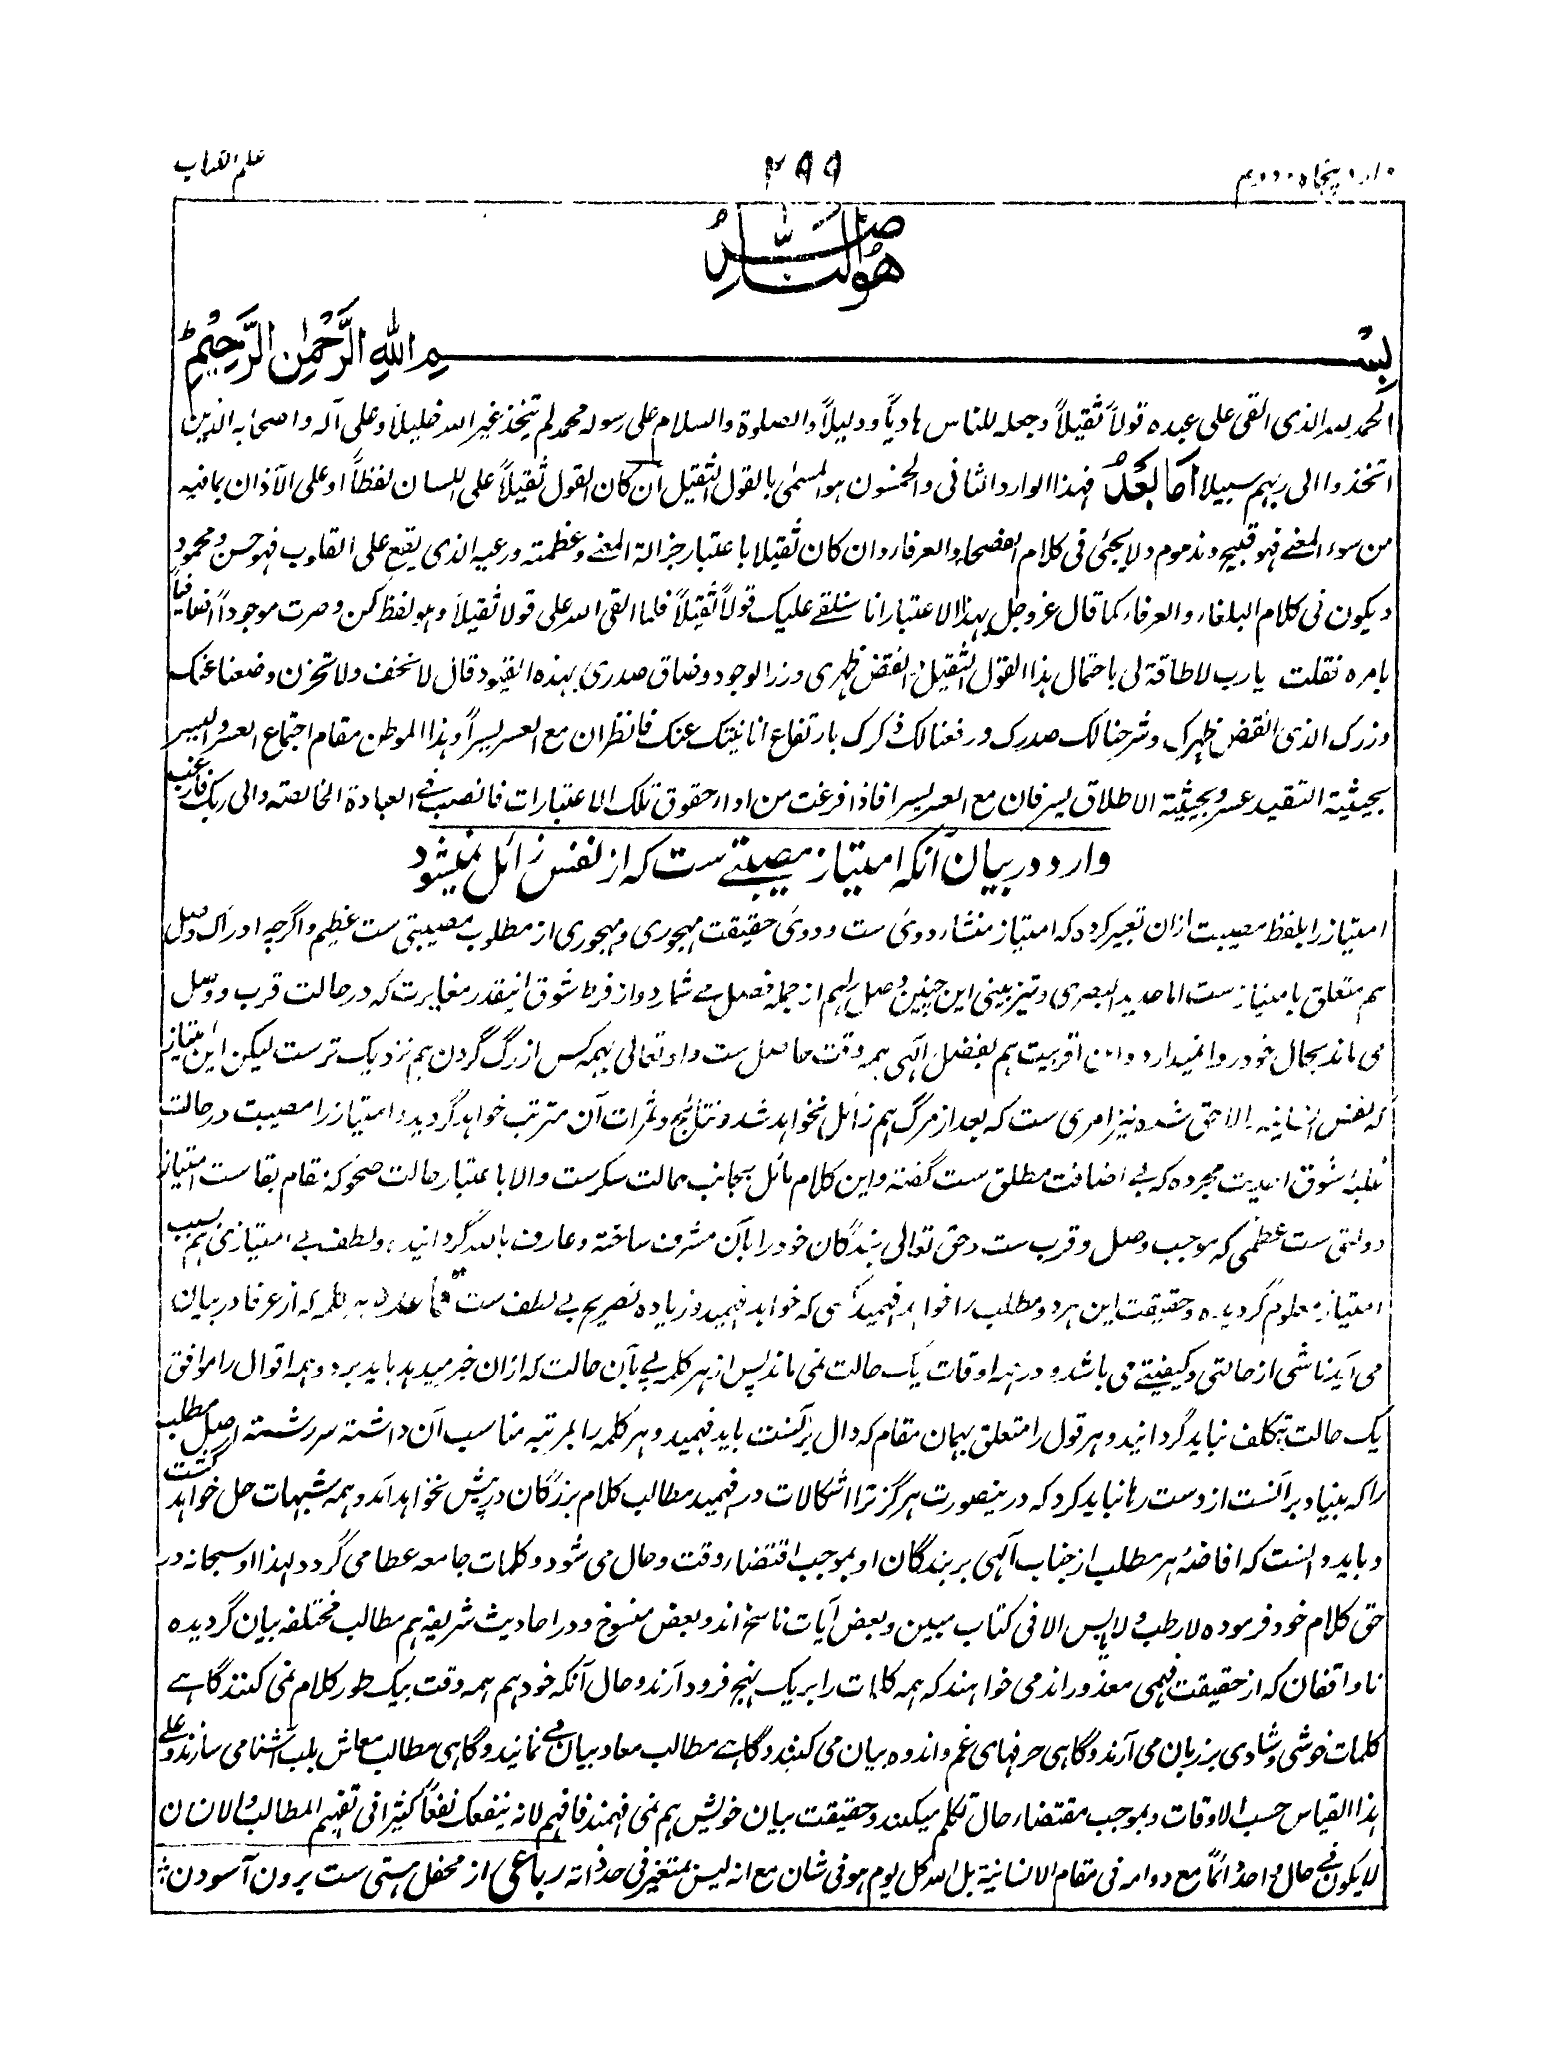 وارد پنجاه و دویم
۲۹۹
علم الکتاب
هو الناصر
بسم الله الرحمن الرحیم
الحمد لله الذی القی علی عبده قولاً ثقیلاً وجعله للناس هادیاً ودلیلاً والصلوة والسلام علی رسوله محمد لم یتخذ غیر الله خلیلا وعلی آله واصحابه الذین
اتخذوا الی ربهم سبیلا اما بعد فهذا الوارد الثانی والخمسون هو المسمی بالقول الثقیل ان کان القول ثقیلاً علی اللسان لفظاً او علی الآذان بما فیه
من سوء المعنے فهو قبیح ومذموم ولا یجئ فی کلام الفصحاء والعرفاء وان کان ثقیلا باعتبار جزالة المعنے وعظمته ورعبه الذی یقع علی القلوب فهو حسن ومحمود
ویکون فی کلام البلغاء والعرفاء کما قال عز وجل بهذا الاعتبار انا سنلقے علیک قولاً ثقیلاً فلما القی الله علی قولا ثقیلاً وهو لفظ کمن وصرت موجوداً
بامره فقلت یا رب لا طاقة لی باحتمال هذا القول الثقیل انقض ظهری وزر الوجود وضاق صدری بهذه القیود قال لا تخف ولا تحزن وضعنا عنک
وزرک الذی انقض ظهرک وشرحنا لک صدرک ورفعنا لک ذکرک بارتفاع انانیتک عنک فانظر ان مع العسر یسراً وهذا الموطن مقام اجتماع العسر والیسر
بحیثیة التقید عسر وبحیثیة الاطلاق یسر فان مع العسر یسرا فاذا فرغت من اداء حقوق تلک الاعتبارات فانصب فے العبادة الخالصة والی ربک فارغب
وارد در بیان آنکه امتیاز مصیبتے ست که از نفس زائل نمیشود
امتیاز را بلفظ مصیبت ازان تعبیر کرده که امتیاز منشاء دوئی ست ودوئی حقیقت مهجوری ومهجوری از مطلوب مصیبتی ست عظیم واگرچه ادراک وصل
هم متعلق بامتیاز ست اما حدید البصری وتیزبینی این چنین وصل را هم از جمله فصل مے شمارد واز فرط شوق اینقدر مغایرت که در حالت قرب ووصل
می ماند بحال خود روا نمیدارد واین اقربیت هم بفضل الٰهی همه وقت حاصل ست واو تعالی بهمه کس از رگ گردن هم نزدیک ترست لیکن این امتیاز
که بنفس انسانیه لاحق شده نیز امری ست که بعد از مرگ هم زائل نخواهد شد ونتائج وثمرات آن مترتب خواهد گردید وامتیاز را مصیبت در حالت
غلبۂ شوق احدیت مجرده که بے اضافت مطلق ست گفته واین کلام مائل بجانب حالت سکرست والا باعتبار حالت صحو که مقام بقاست امتیاز
دولتی ست عظمی که موجب وصل وقرب ست وحق تعالی بندگان خود را بآن مشرف ساخته وعارف بالله گردانیده ولطف بے امتیازی هم بسبب
امتیاز معلوم گردیده وحقیقت این هر دو مطلب را خواهد فهمید کسی که خواهد فهمید وزیاده تصریح بے لطف ست قاعده هر کلمه که از عرفا در بیان
می آید ناشی از حالتی وکیفیتے می باشد ودر همه اوقات یک حالت نمی ماند پس از هر کلمه پے بآن حالت که ازان خبر میدهد باید برد وهمه اقوال را موافق
یک حالت بتکلف نباید گردانید وهر قول را متعلق بهمان مقام که دال برآنست باید فهمید وهر کلمه را بمرتبه مناسب آن داشته سررشته اصل مطلب
را که بنیاد برآنست از دست رها نباید کرد که درینصورت هرگز ترا اشکالات در فهمید مطالب کلام بزرگان درپیش نخواهد آمد وهمه شبهات حل خواهد گشت
وباید دانست که افاضۂ هر مطلب از جناب الٓهی بر بندگان او بموجب اقتضاء وقت وحال می شود وکلمات جامعه عطا می گردد لهذا او سبحانه در
حق کلام خود فرموده لا رطب ولا یابس الا فی کتاب مبین وبعض آیات ناسخ اند وبعض منسوخ ودر احادیث شریفه هم مطالب مختلفه بیان گردیده
ناواقفان که از حقیقت فهمی معذوراند می خواهند که همه کلمات را بر یک نهج فرود آرند وحال آنکه خود هم همه وقت بیک طور کلام نمی کنند گاهے
کلمات خوشی وشادی بر زبان می آرند وگاهی حرفهای غم واندوه بیان می کنند وگاهے مطالب معاد بیان مے نمایند وگاهی مطالب معاش بلب آشنا می سازند وعلی
هذا القیاس حسب الاوقات وبموجب مقتضاء حال تکلم میکنند وحقیقت بیان خویش هم نمی فهمند فافهم لانه ینفعک نفعاً کثیرا فی تفهیم المطالب والانسان
لا یکون فے حال واحد دائماً مع دوامه فی مقام الانسانیة بل الله کل یوم هو فی شان مع انه لیس بمتغیر فی حد ذاته رباعی از محفل هستی ست برون آسودن